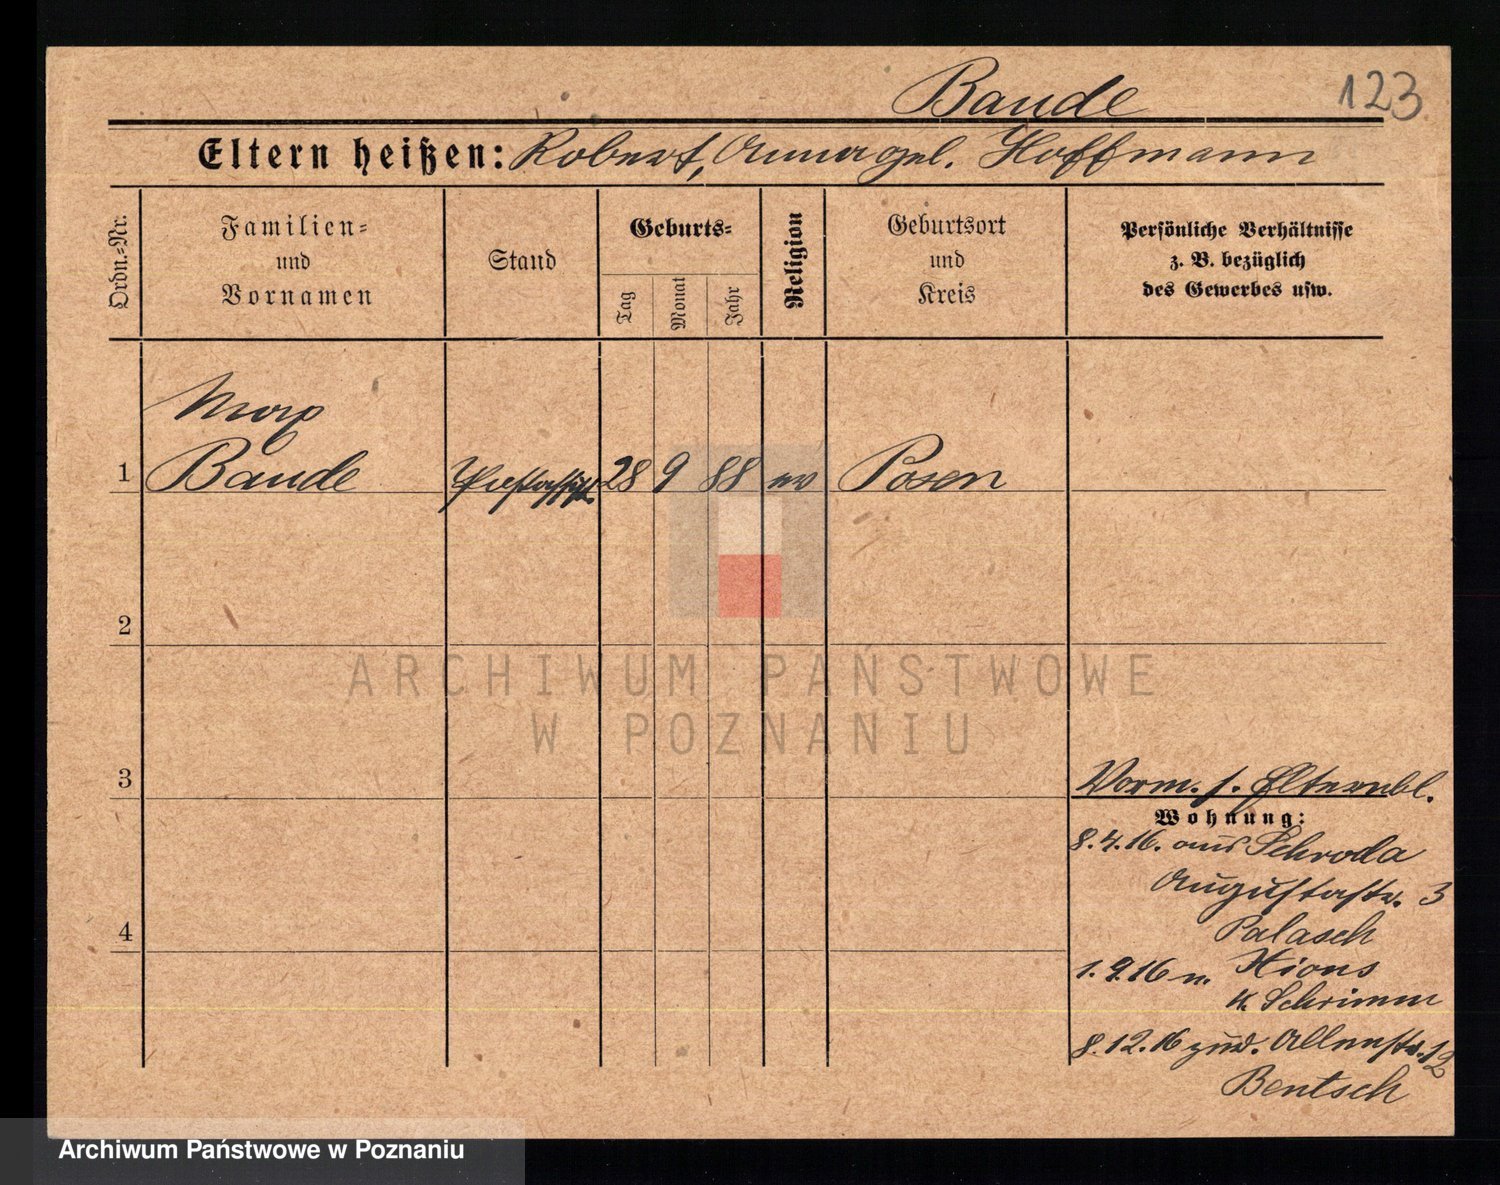 Baude 123
Eltern heißen: Robert, Anna gel. Hoffmann
Ordn.-Nr.
Familien-
und
Vornamen
Stand
Geburts-
Tag
Monat
Jahr
Religion
Geburtsort
und
Kreis
Persönliche Verhältnisse
z. B. bezüglich
des Gewerbes usw.
Max
1 Baude 28 9 88 ev Posen
2
ARCHIWUM PAŃSTWOWE
W POZNANIU
3
Vorm. s. Elternbl.
Wohnung:
8.4.16. aus Schroda
Augustastr. 3
Palasch
4
1.9.16 n. Xions
K. Schrimm
8.12.16 zur. Allenstr. 12
Bentsch
Archiwum Państwowe w Poznaniu